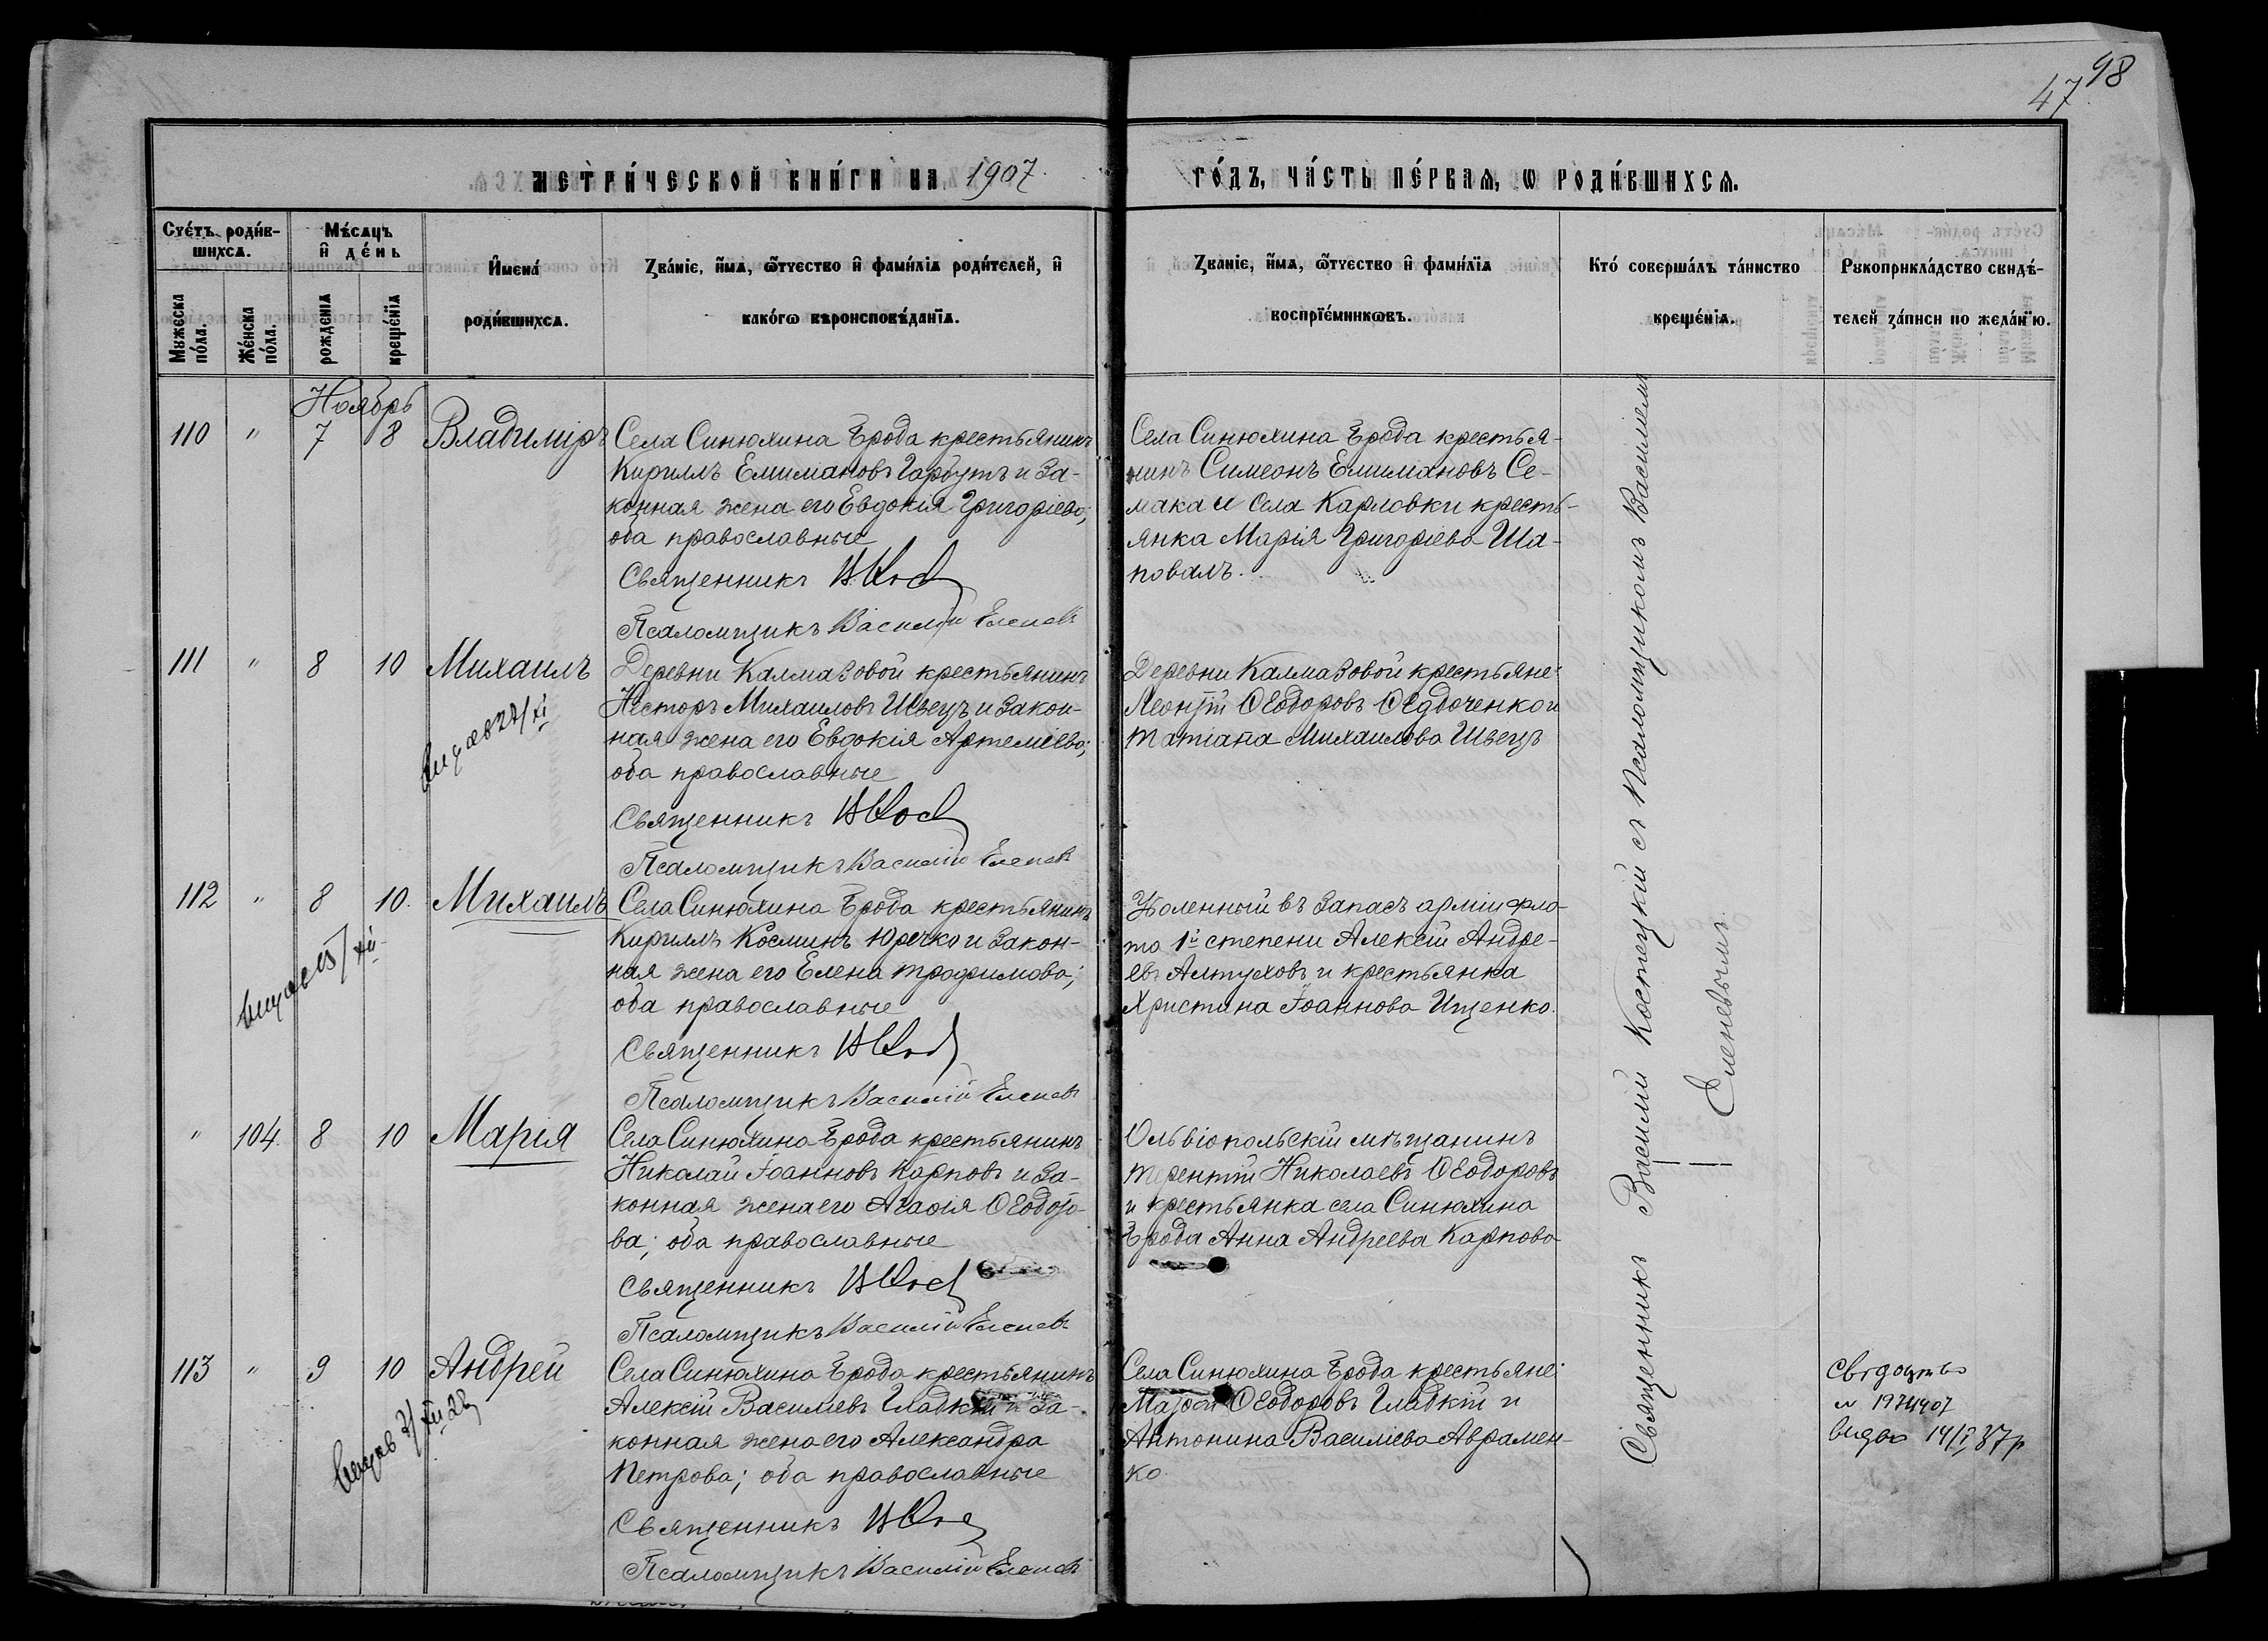 98
47
МЕТРИ́ЧЕСКОЙ КНИ́ГИ НА 1907.
ГО́ДЪ, ЧА́СТЬ ПЕ́РВАѦ, Ѡ РОДИ́ВШИХСѦ.
Сче́тъ роди́в-
шихсѧ.
Мꙋжеска
по́ла.
Же́нска
по́ла.
Мѣ́сѧцъ
и҆ де́нь
рожде́нїѧ
креще́нїѧ
И҆мена̀
роди́вшихсѧ.
Зва́нїе, и҆́мѧ, ѻ҆́тчество и҆ фами́лїѧ роди́телей, и҆
како́гѡ вѣроисповѣ́данїѧ.
Зва́нїе, и҆́мѧ, ѻ҆́тчество и҆ фами́лїѧ
воспрїе́мникѡвъ.
Кто̀ соверша́лъ та́инство
креще́нїѧ.
Рꙋкоприкла́дство свидѣ́-
телей за́писи по жела́нїю.
Ноябрь
110 " 7 8 Владиміръ
Села Синюхина Брода крестьянинъ
Кириллъ Емимановъ Гарбузъ и за-
конная жена его Евдокія Григоріева;
оба православные
Священникъ
Псаломщикъ Василій Еленев
Села Синюхина Брода крестья-
нинъ Симеонъ Емимановъ Се-
мака и села Карловки кресть-
янка Марія Григоріева Ша-
повалъ.
111 " 8 10 Михаилъ
Деревни Калмазовой крестьянинъ
Несторъ Михаиловъ Швецъ и закон-
ная жена его Евдокія Артеміева;
оба православные
Священникъ
Псаломщикъ Василій Еленев
Деревни Калмазовой крестьяне:
Леонтій Ѳеодоровъ Ѳедоченко и
Татіана Михаилова Швецъ
112 " 8 10. Михаилъ
Села Синюхина Брода крестьянинъ
Кириллъ Косминъ Юречко и закон-
ная жена его Елена Трофимова;
оба православные
Священникъ
Псаломщикъ Василій Еленев
Уволенный въ запасъ арміи фло-
та 1й степени Алексій Андре-
евъ Алтуховъ и крестьянка
Христина Іоаннова Ищенко.
" 104. 8 10 Марія
Села Синюхина Брода крестьянинъ
Николай Іоанновъ Карповъ и за-
конная жена его Агафія Ѳеодоро-
ва; оба православные
Священникъ
Псаломщикъ Василій Еленев
Ольвіопольскій мѣщанинъ
Терентій Николаевъ Ѳеодоровъ
и крестьянка села Синюхина
Брода Анна Андреева Карпова
113 " 9 10 Андрей
Села Синюхина Брода крестьянинъ
Алексій Василіевъ Гладкій и за-
конная жена его Александра
Петрова; оба православные
Священникъ
Псаломщикъ Василій Еленев
Села Синюхина Брода крестьяне:
Ѳеодоровъ Гладкій и
Антонина Василіева Аврамен-
ко.
Священникъ Василій Костецкій съ Псаломщикомъ Василіемъ
Еленевымъ.
14/I 37р